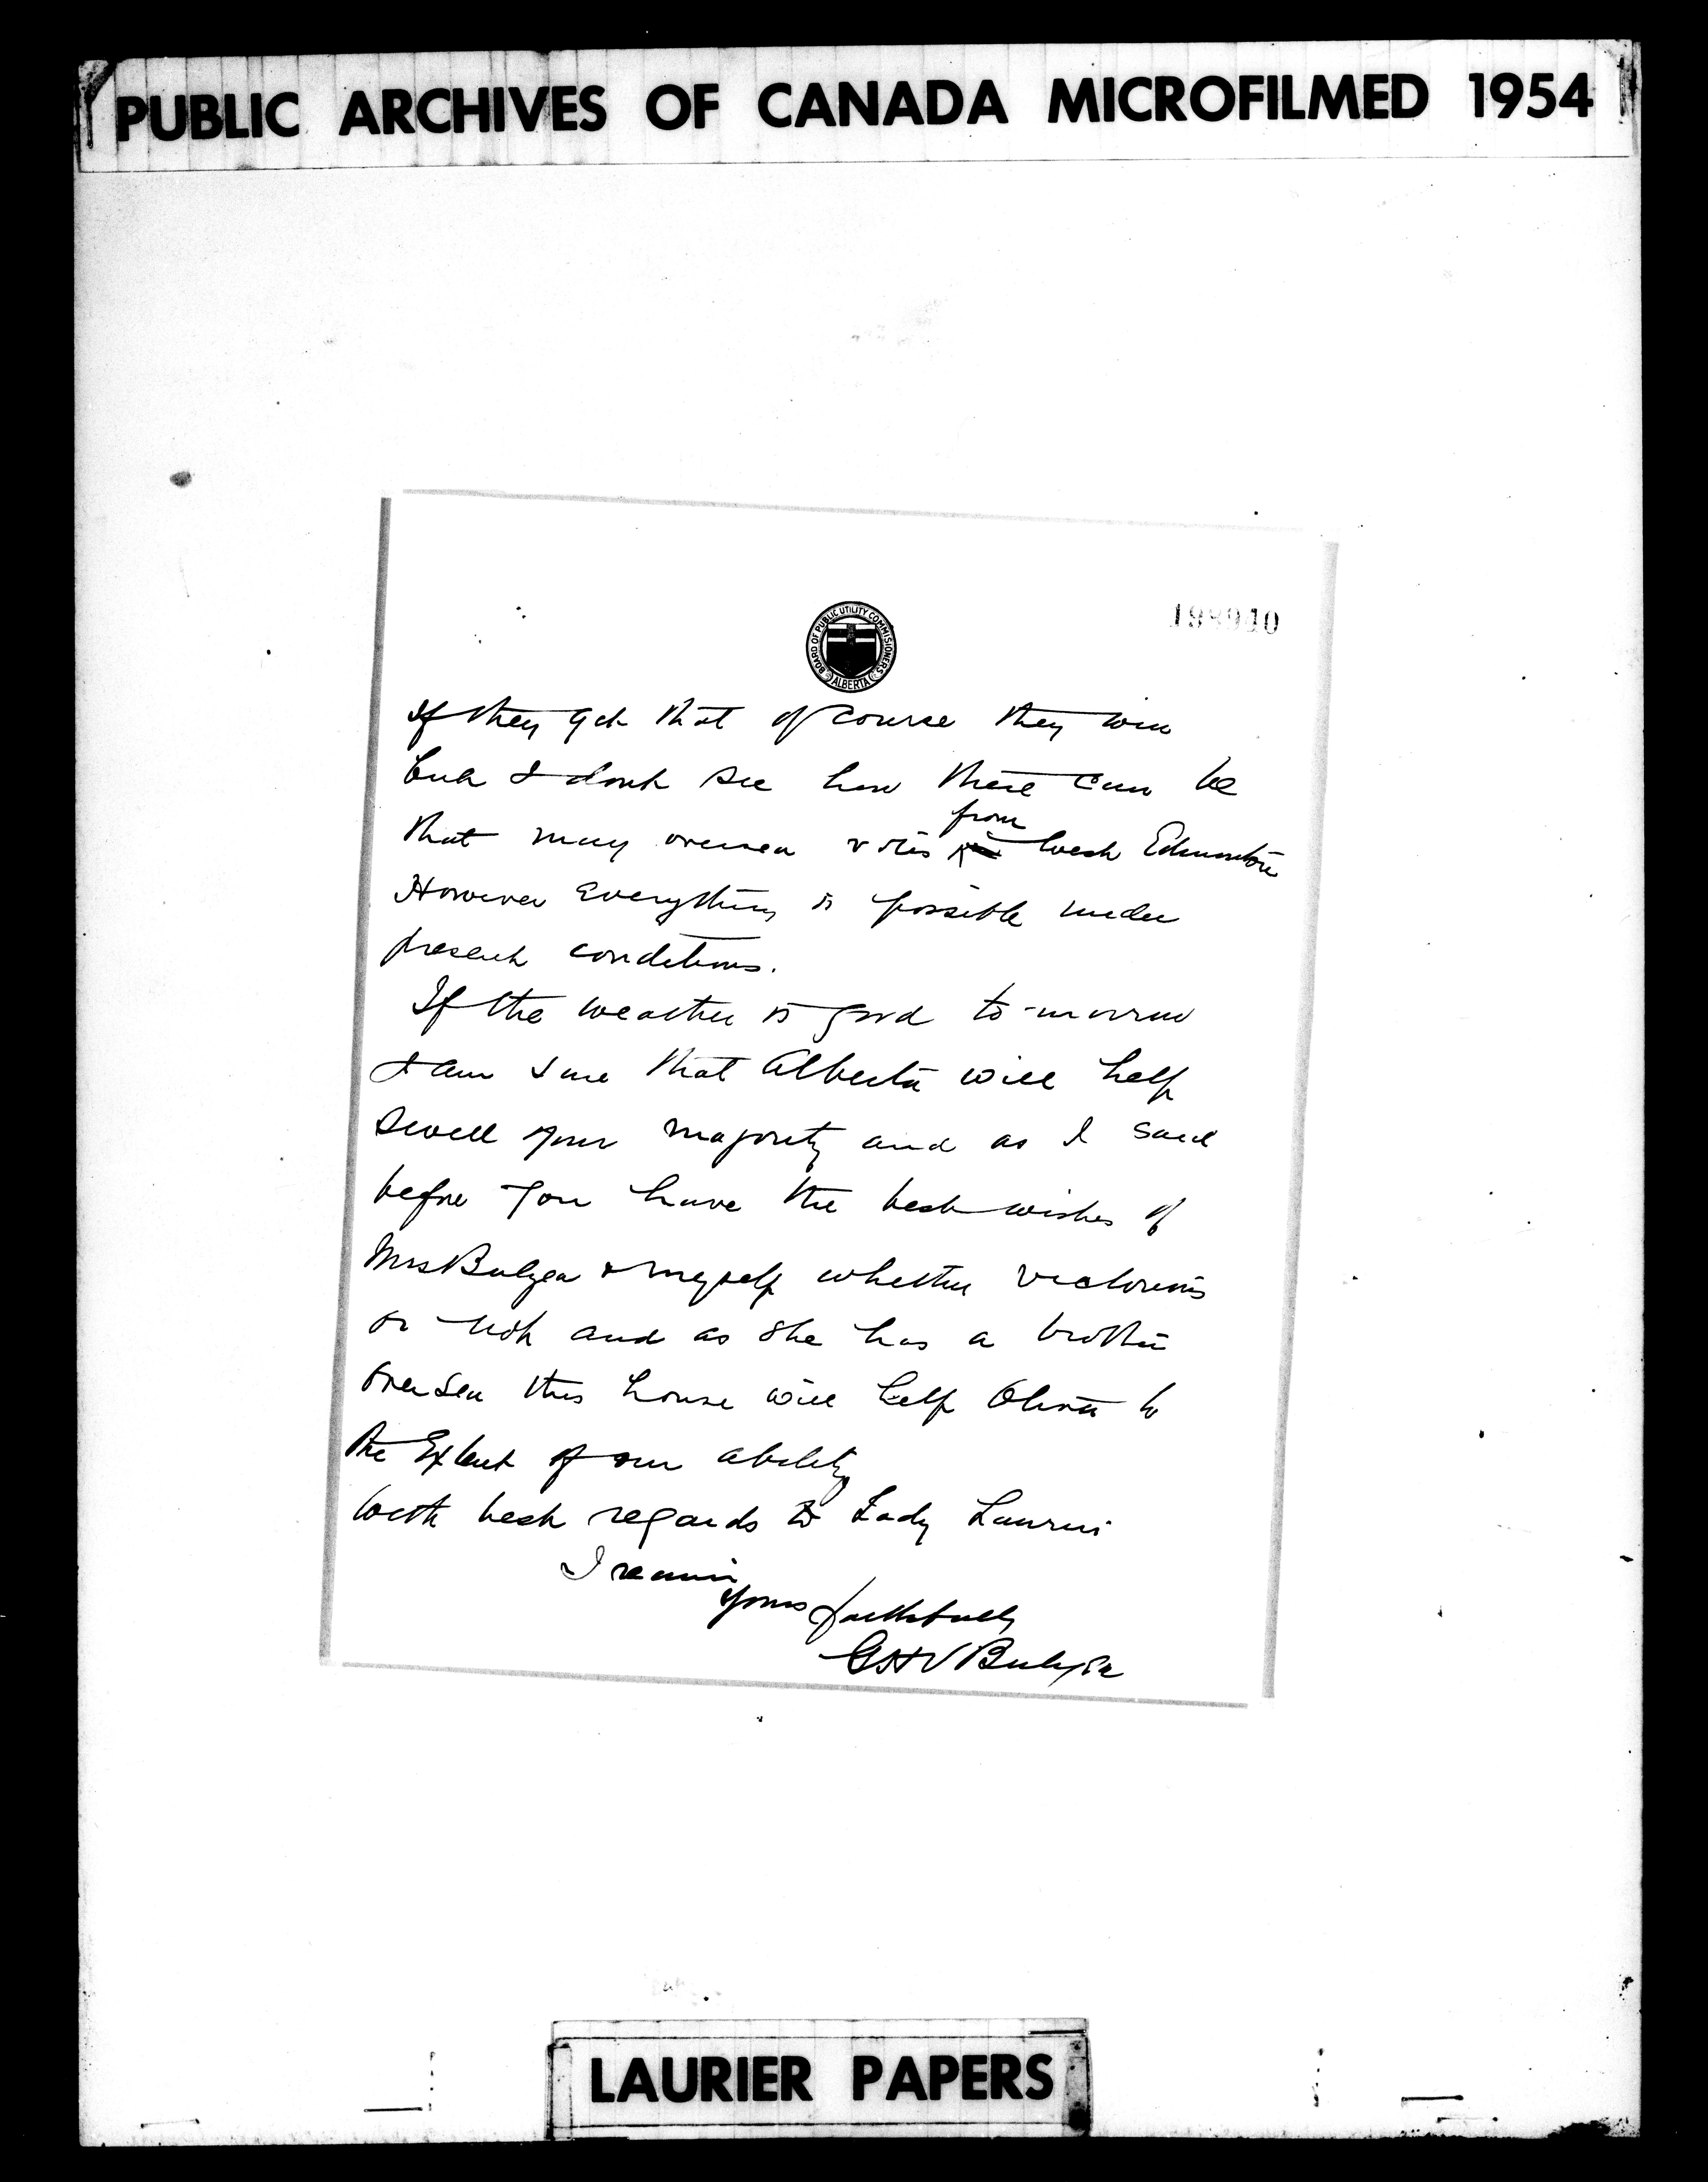 PUBLIC ARCHIVES OF CANADA MICROFILMED 1954
198940
BOARD OF PUBLIC UTILITY COMMISSIONERS
ALBERTA
If they get that of course they win
but I dont see how there can be
from
that many oversea votes West Edmonton
However everything is possible under
present conditions.
If the weather is good to-morrow
I am sure that Alberta will help
swell your majority and as I said
before you have the best wishes of
Mrs Bulyea & myself whether victorious
or not and as she has a brother
oversea this house will help Oliver to
the Extent of our ability
With best regards to Lady Laurier
I remain
Yours faithfully
GHV Bulyea
LAURIER PAPERS